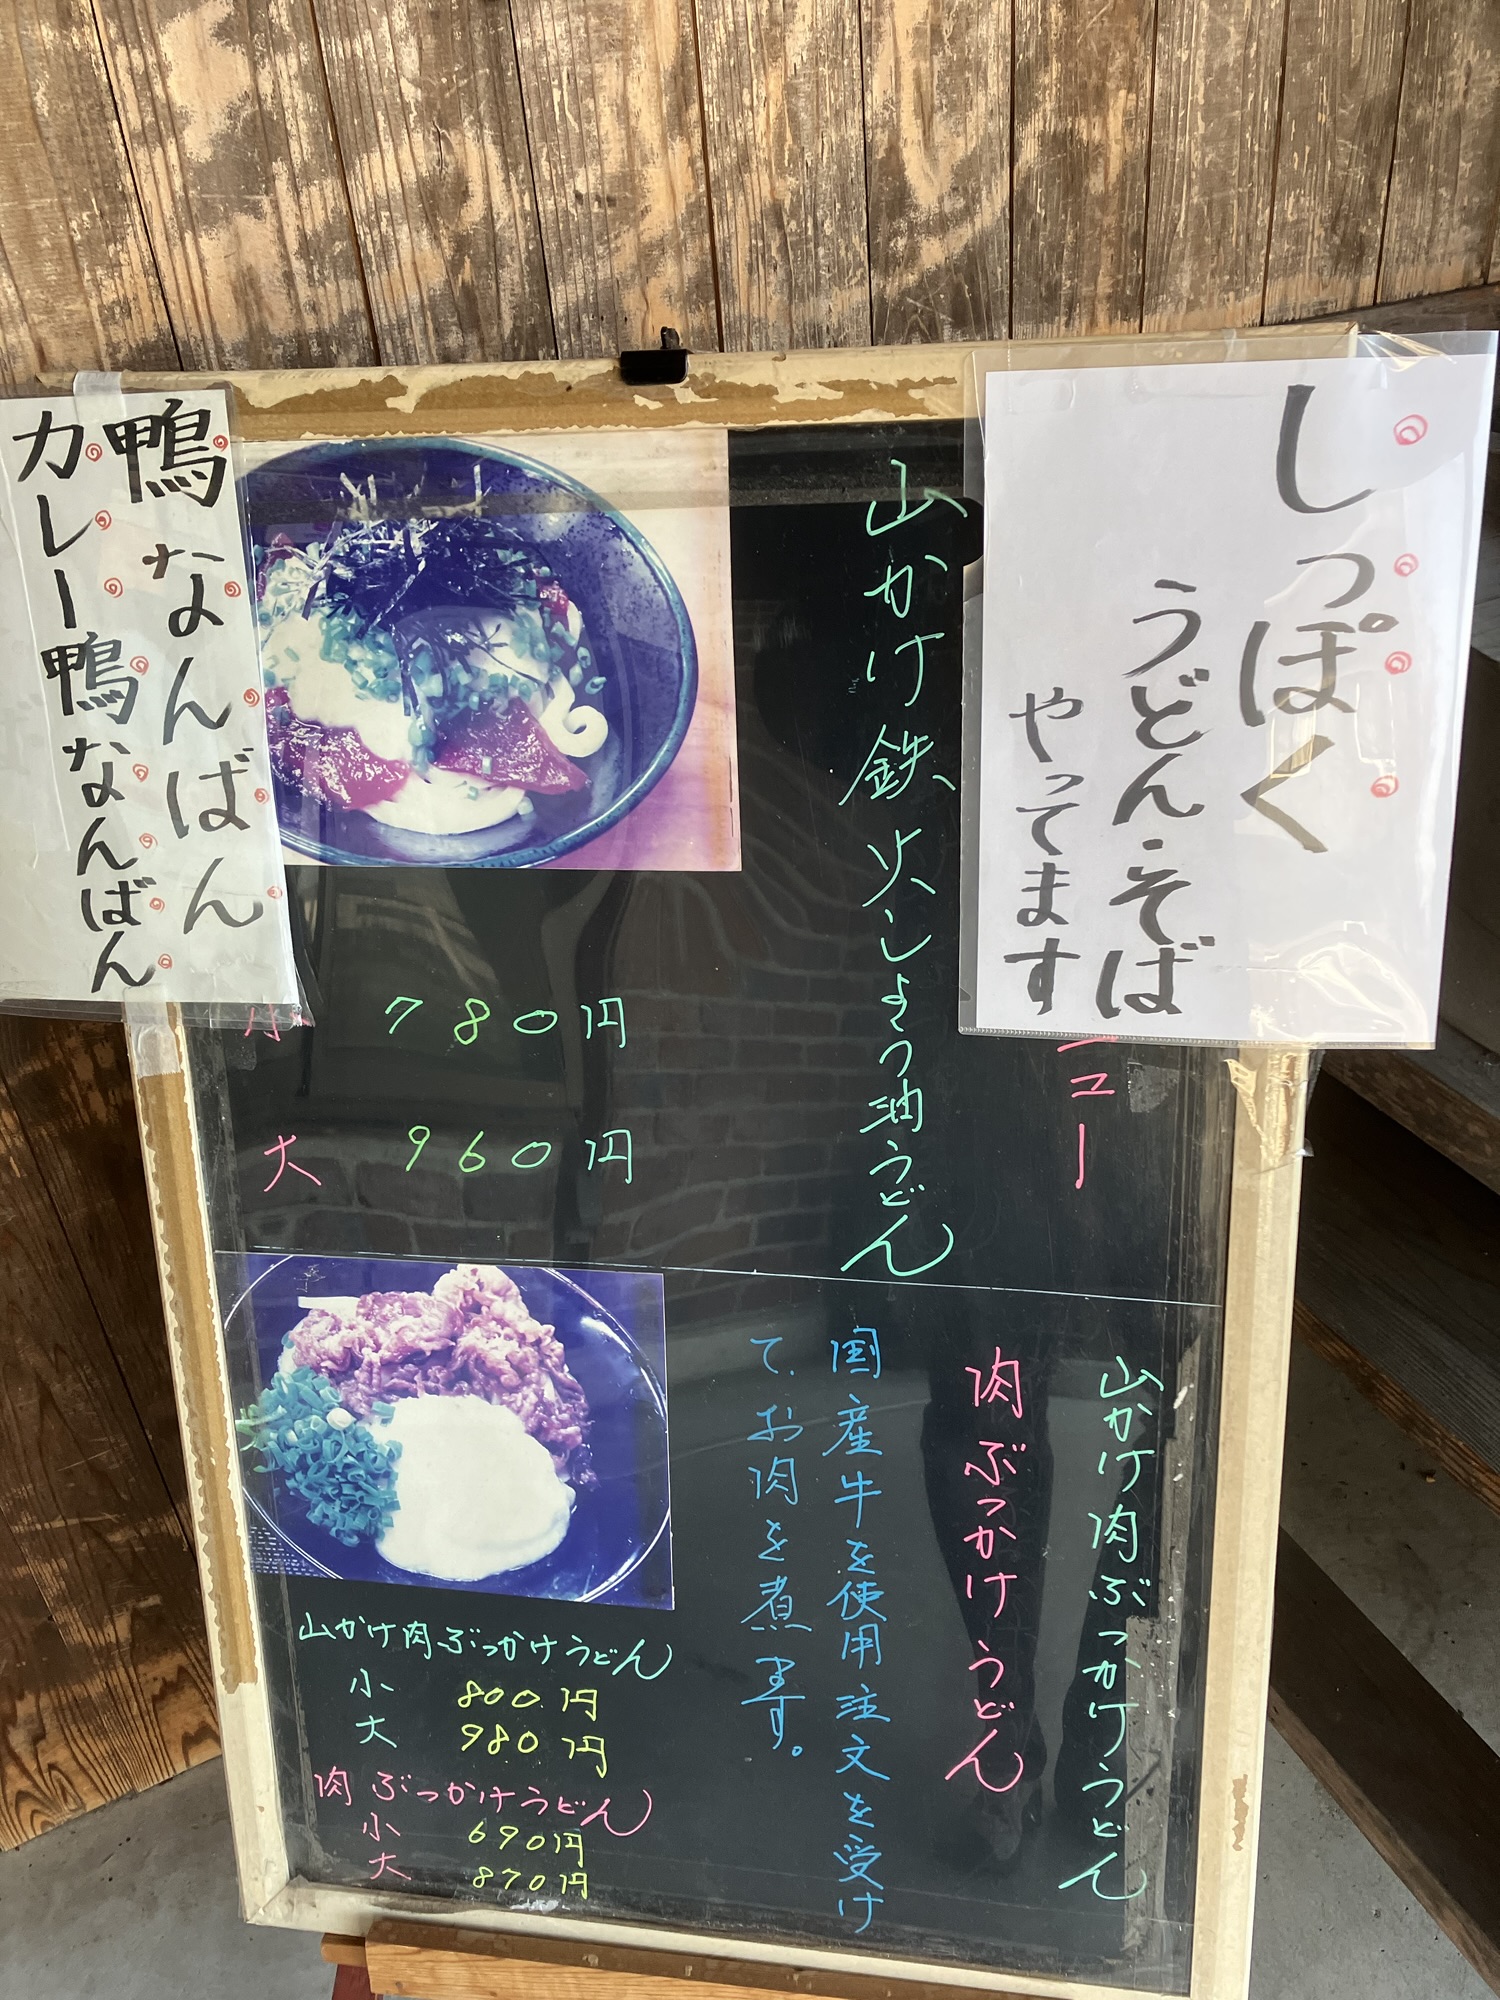 しっぽく
うどん・そば
やってます
ニュー
山かけ鉄火しょうゆ油うどん
小 780円
大 960円
鴨なんばん
カレー鴨なんばん
山かけ肉ぶっかけうどん
肉ぶっかけうどん
国産牛を使用注文を受け
て、お肉を煮ます。
山かけ肉ぶっかけうどん
小 800円
大 980円
肉ぶっかけうどん
小 690円
大 870円